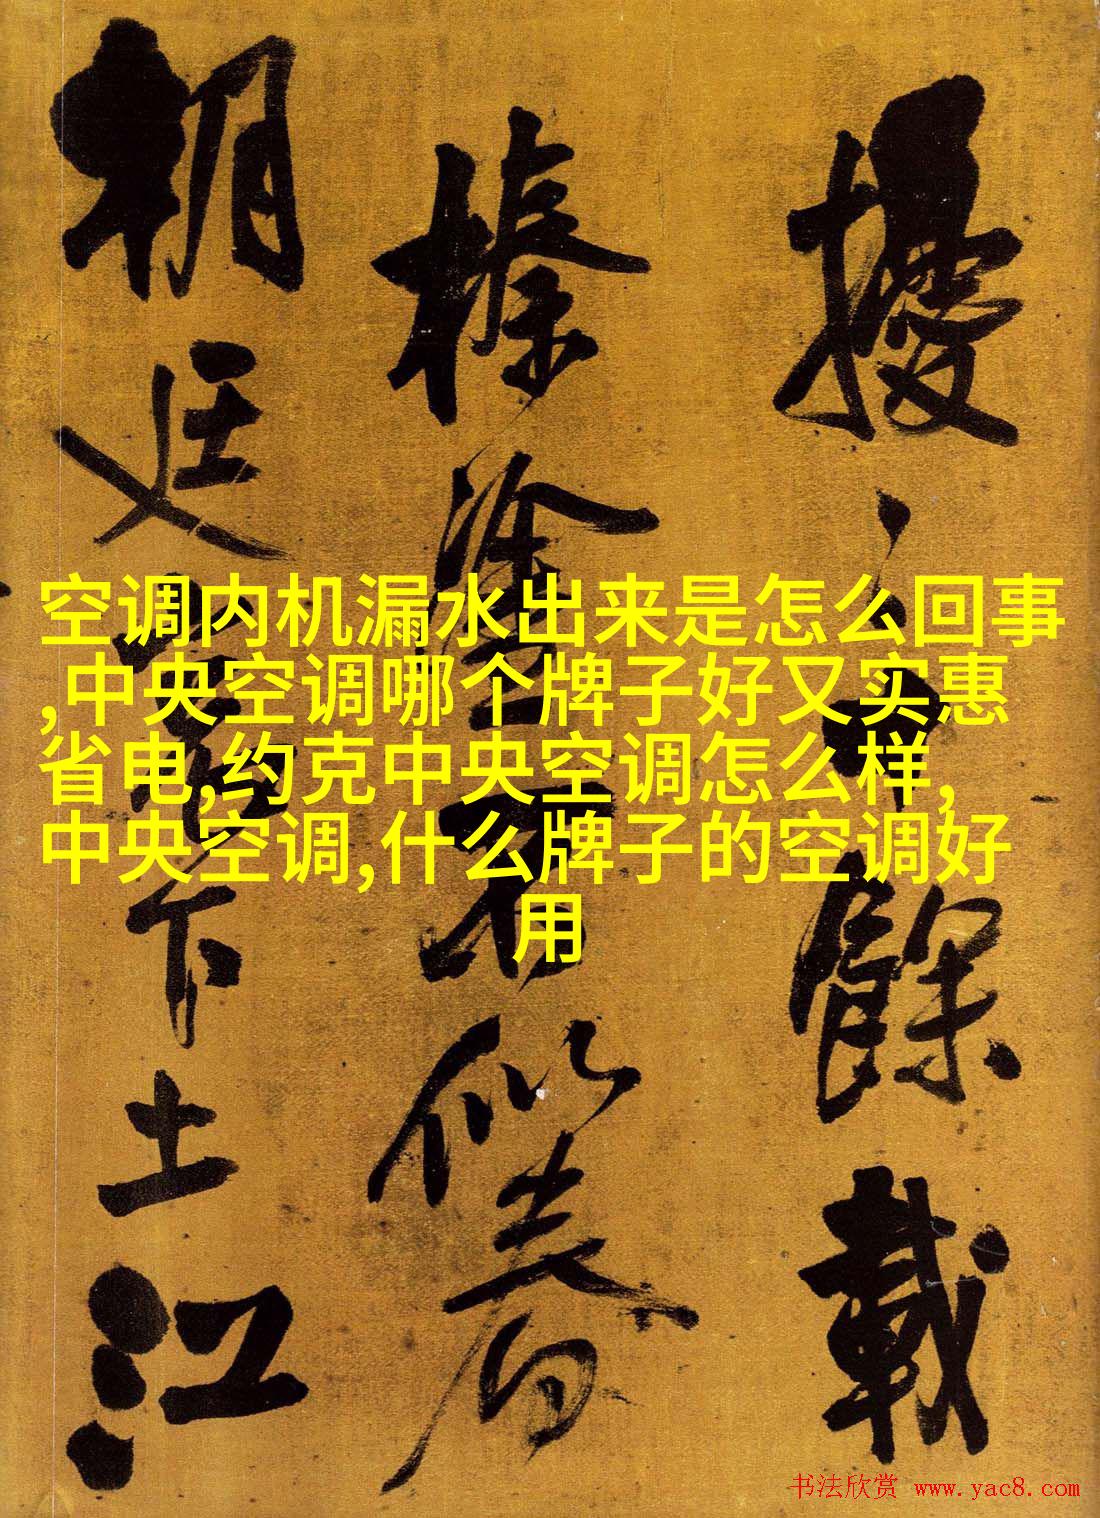 空调内机漏水出来是怎么回事
,中央空调哪个牌子好又实惠
省电,约克中央空调怎么样,
中央空调,什么牌子的空调好
用
擾餘載
榛塗
朝廷下土江
书法欣赏 www.yac8.com